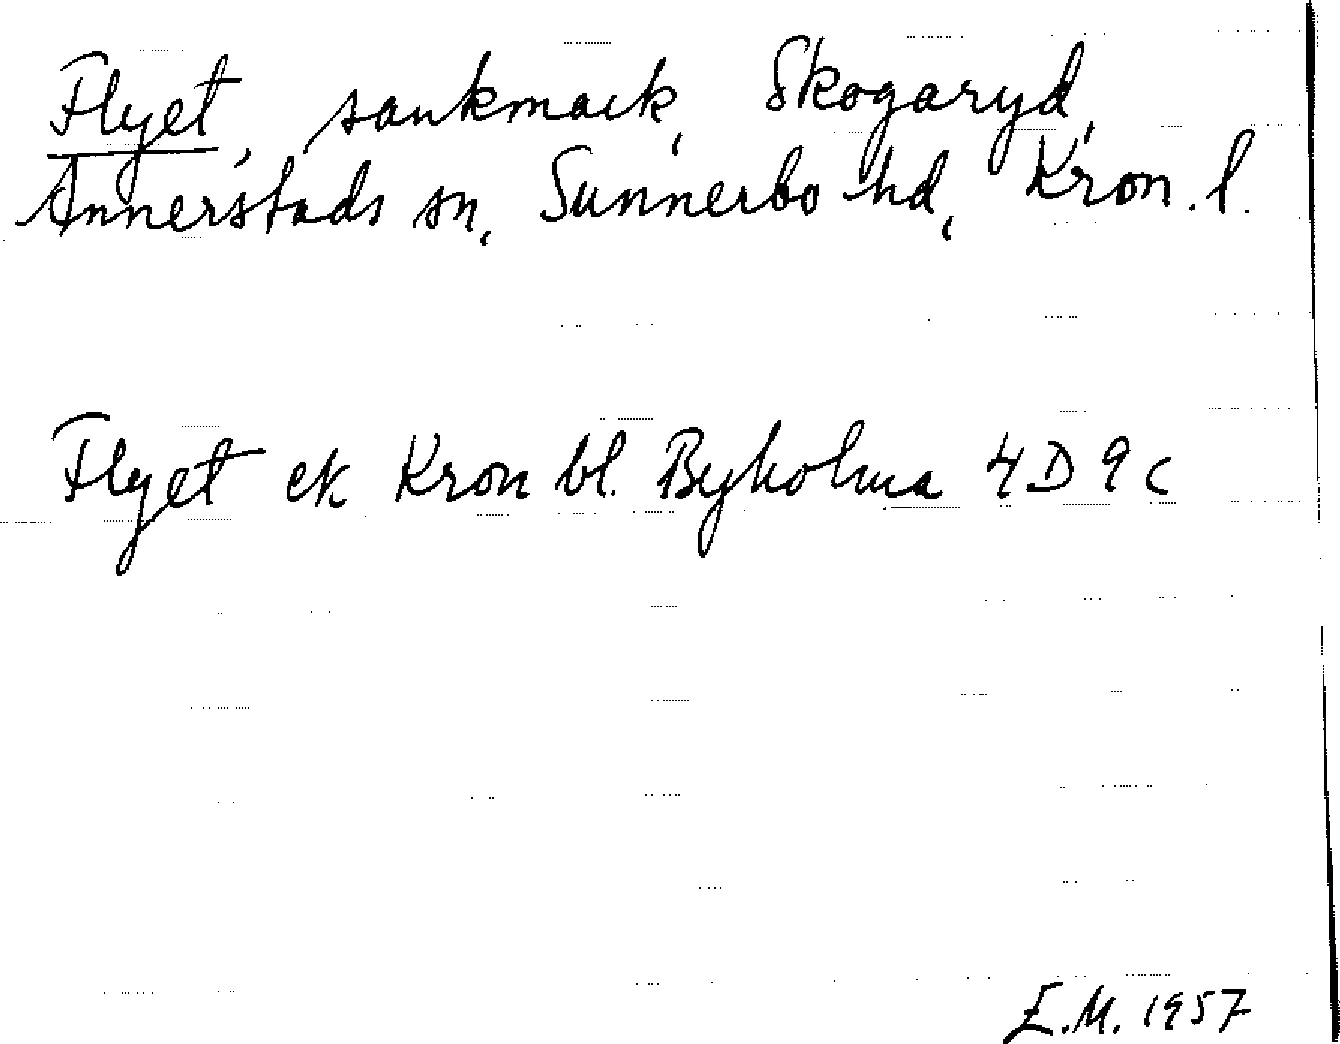 Flyet, sankmark, Skogaryd,
Annerstads sn, Sunnerbo hd, Kron. l.
Flyet ek Kron bl. Byholma 4D 9c
E.M. 1957